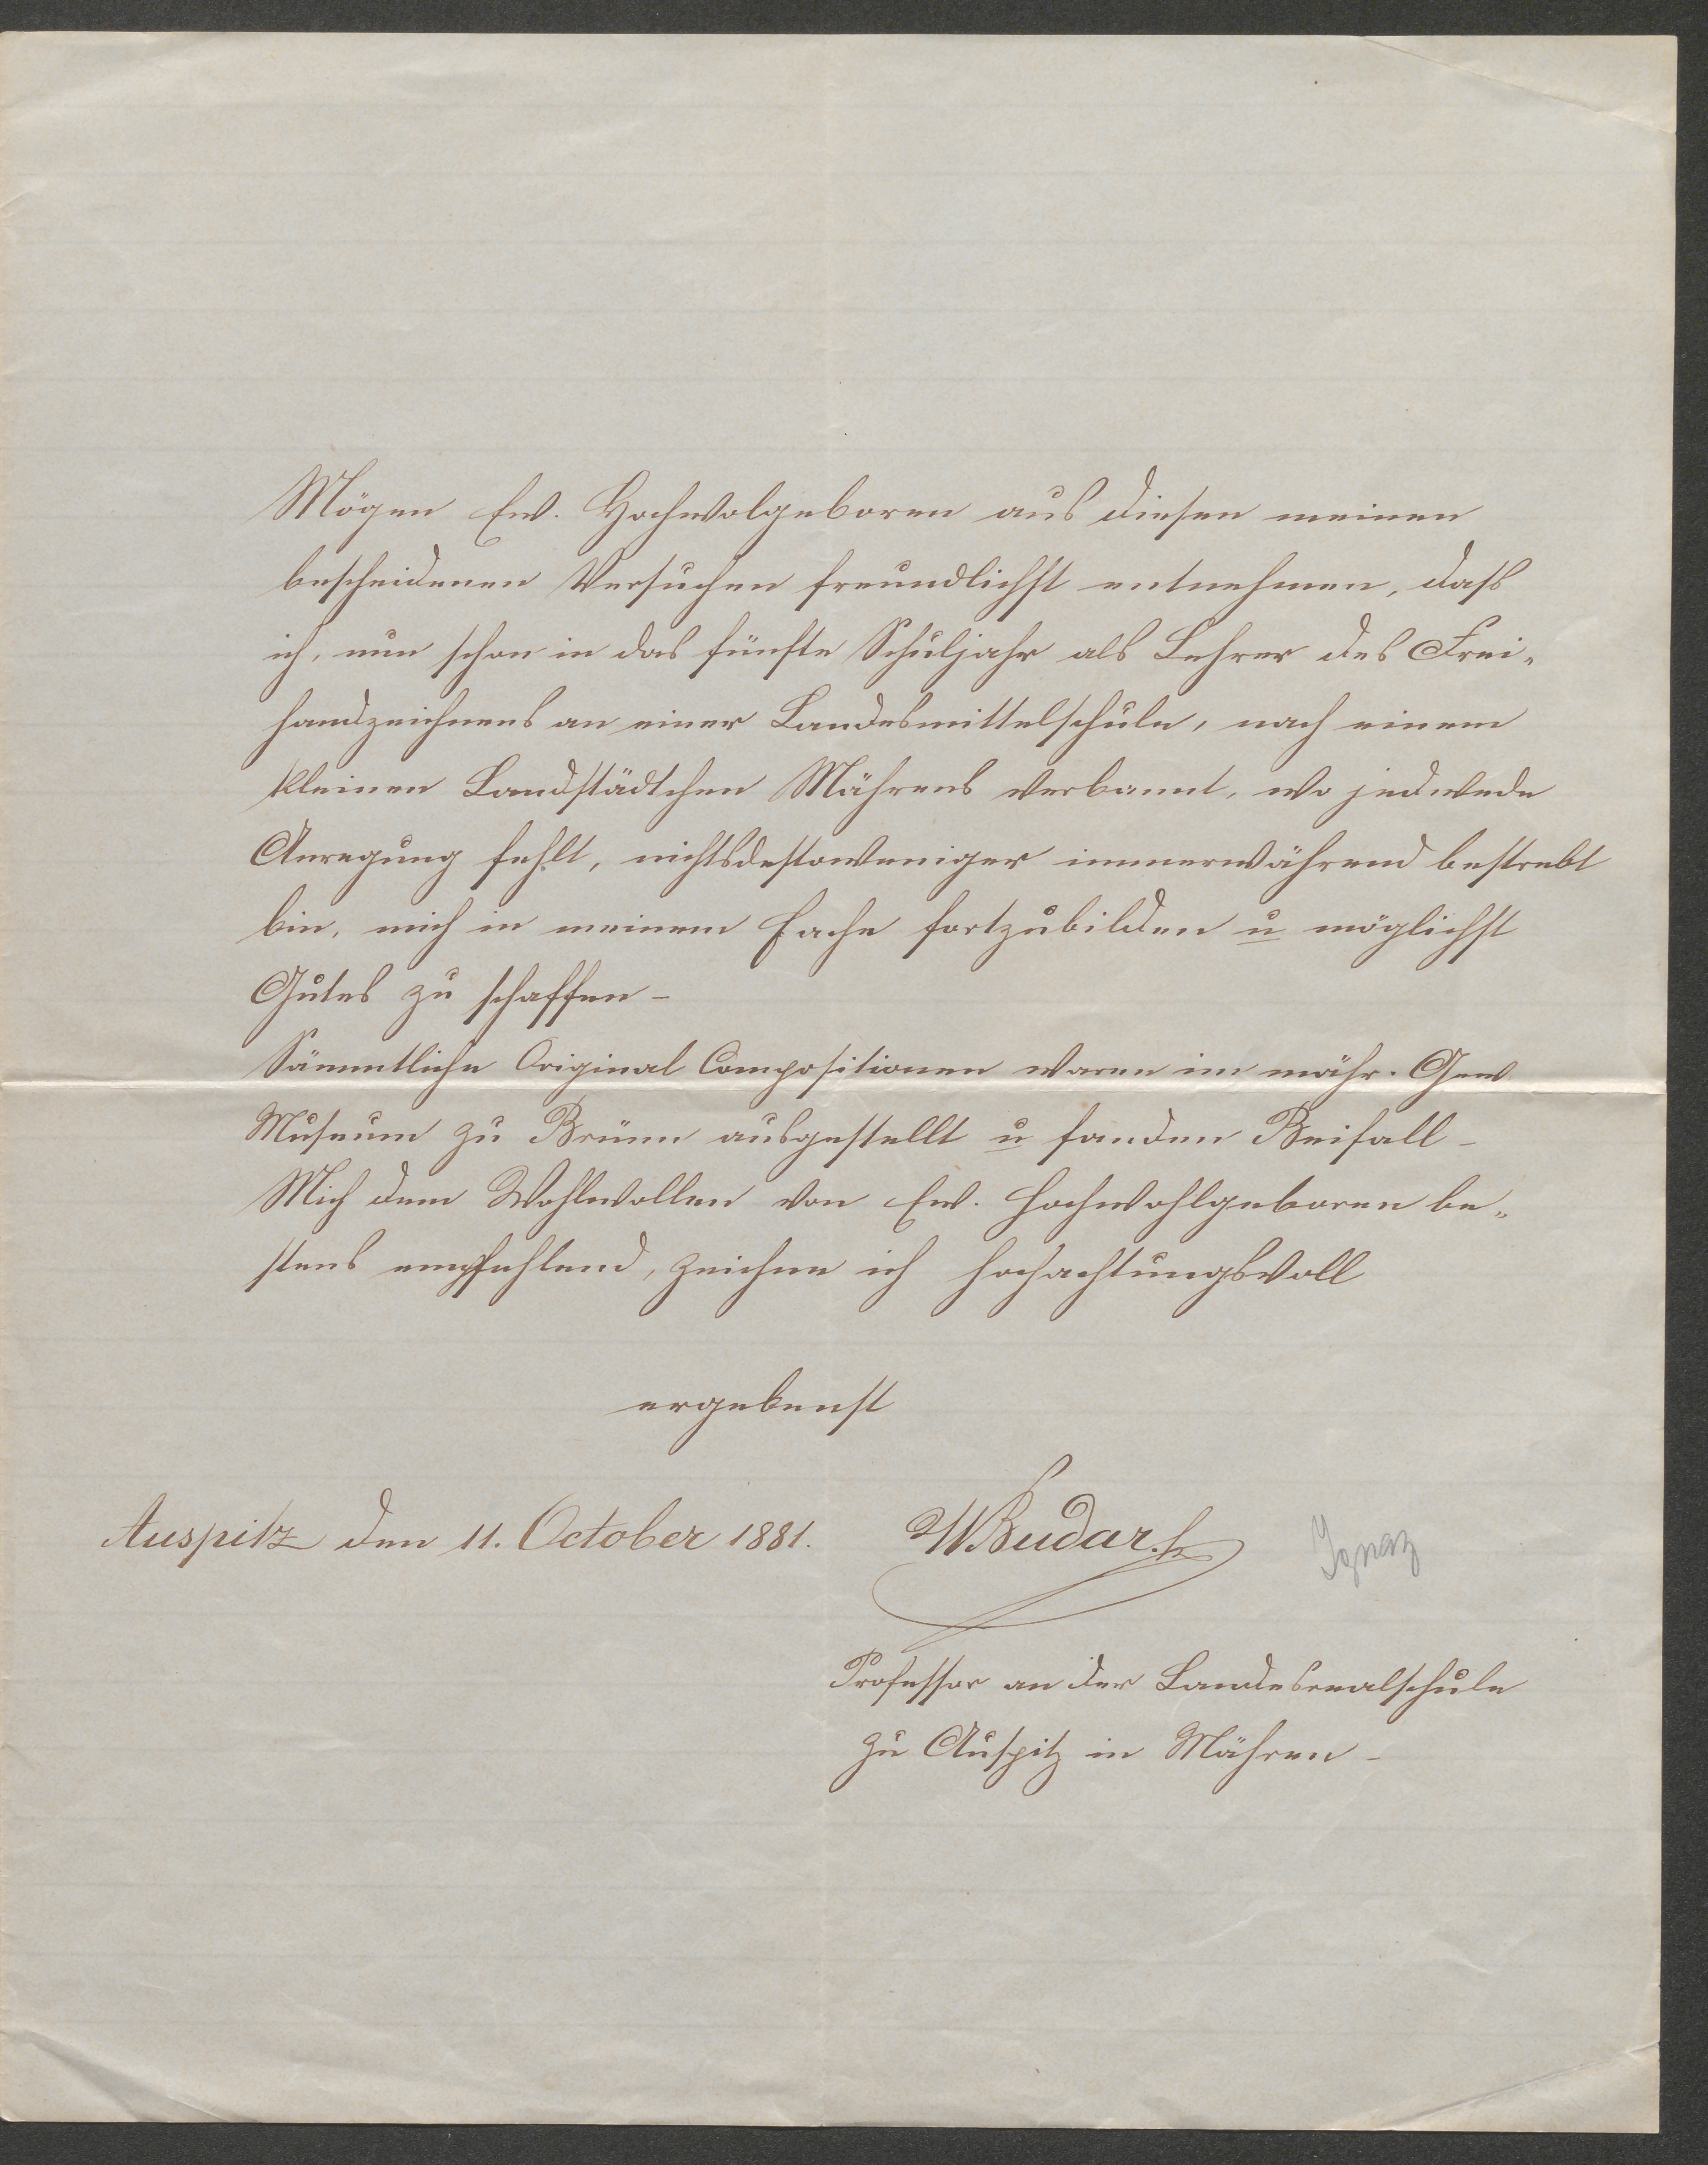 Mögen Ew. Hochwolgeboren aus diesen meinen
bescheidenen Versuchen freundlichst entnehmen, dass
ich, nun schon in das fünfte Schuljahr als Lehrer des Frei-
handzeichnens an einer Landesmittelschule, nach einem
kleinen Landstädtchen Mährens verbannt, wo jedwede
Anregung fehlt, nichtsdestoweniger immerwährend bestrebt
bin, mich in meinem Fache fortzubilden u möglichst
Gutes zu schaffen –
Sämmtliche Original Compositionen waren im mähr. Gew
Museum zu Brünn ausgestellt u fanden Beifall –
Mich dem Wohlwollen von Ew. Hochwohlgeboren be-
stens empfehlend, zeichne ich hochachtungsvoll
ergebenst
Auspitz den 11. October 1881.
Budar
Ignaz
Professor an der Landesrealschule
zu Auspitz in Mähren –